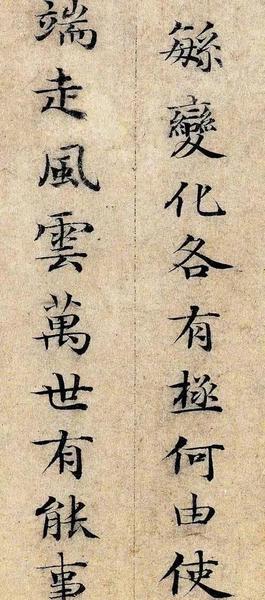 繇變化各有極何由使
端走風雲萬世有能事